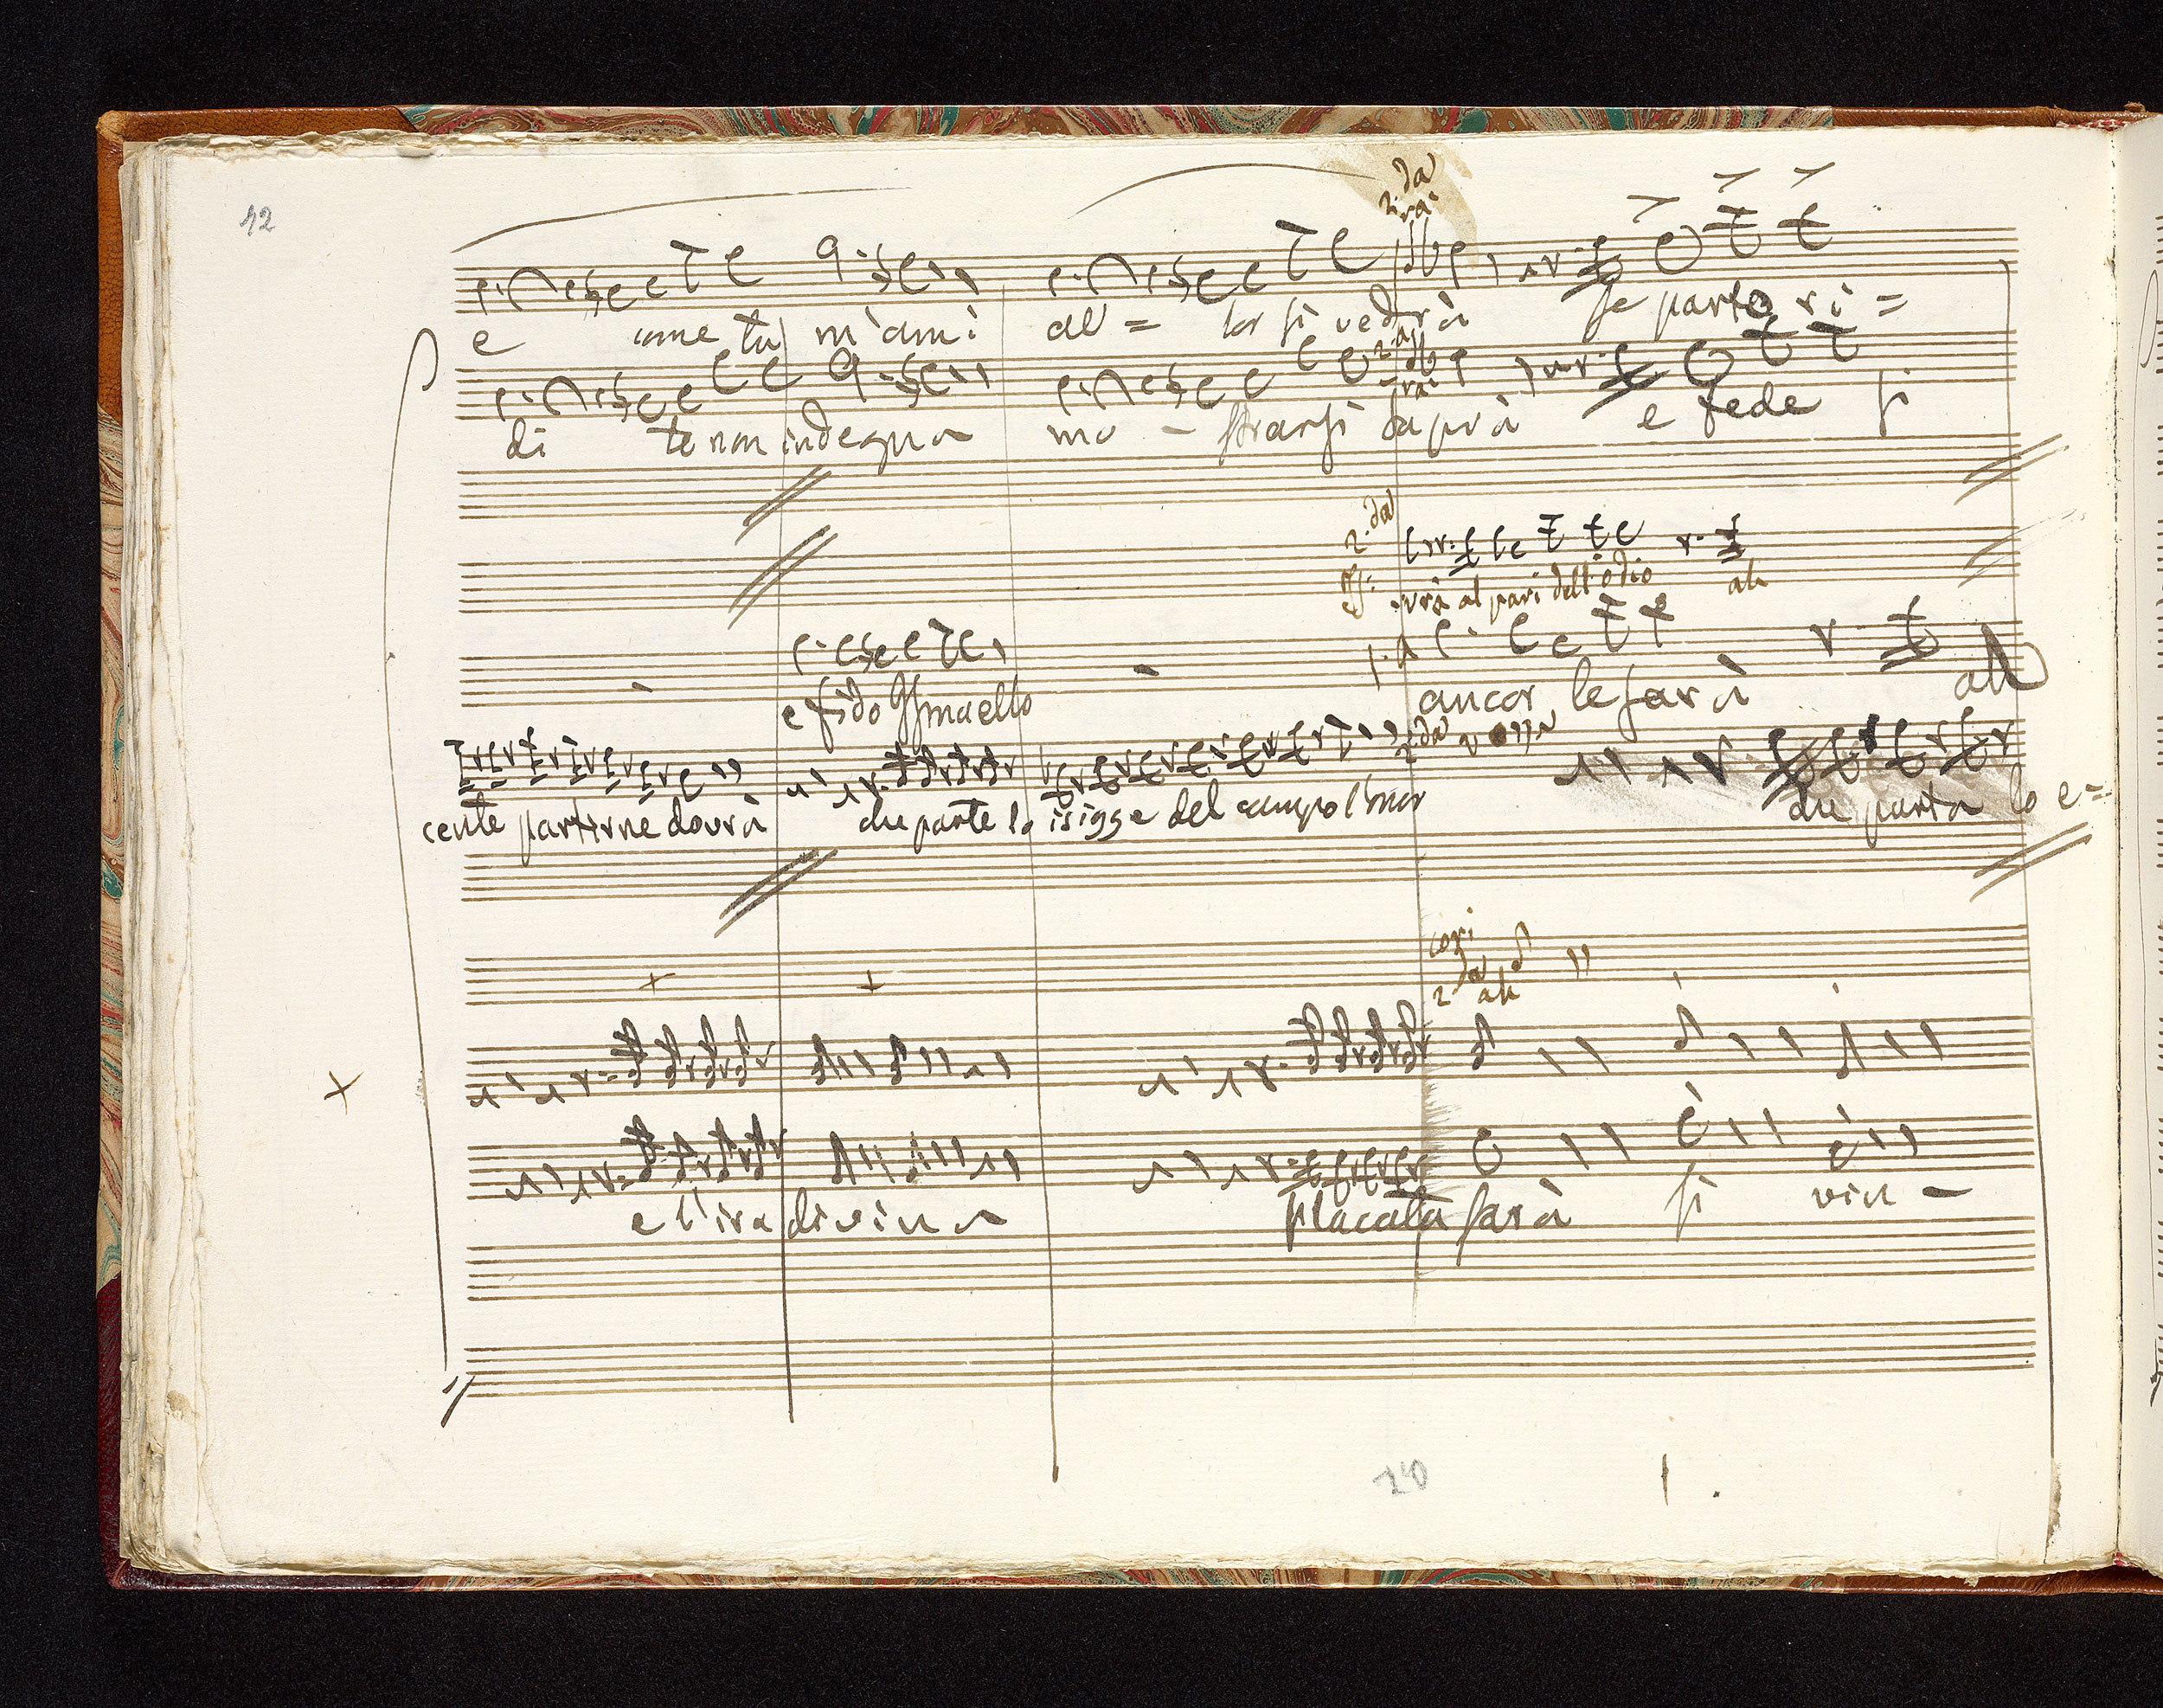 12
2.da
rà
e come tu m'ami al= lor si vedrà se parto ri=
2.a
rà
di te non indegna mo - strarsi saprà e fede si
2.da
vrà al pari dell'odio ah
1.a
e fido Ismaello ancor le sarà ah
2.da
cente partirne dovrà che parte lo esigge del campo l'onor che parta lo e=
cori
2.da ah
e l'ira divina placata sarà si vin -
20
1.